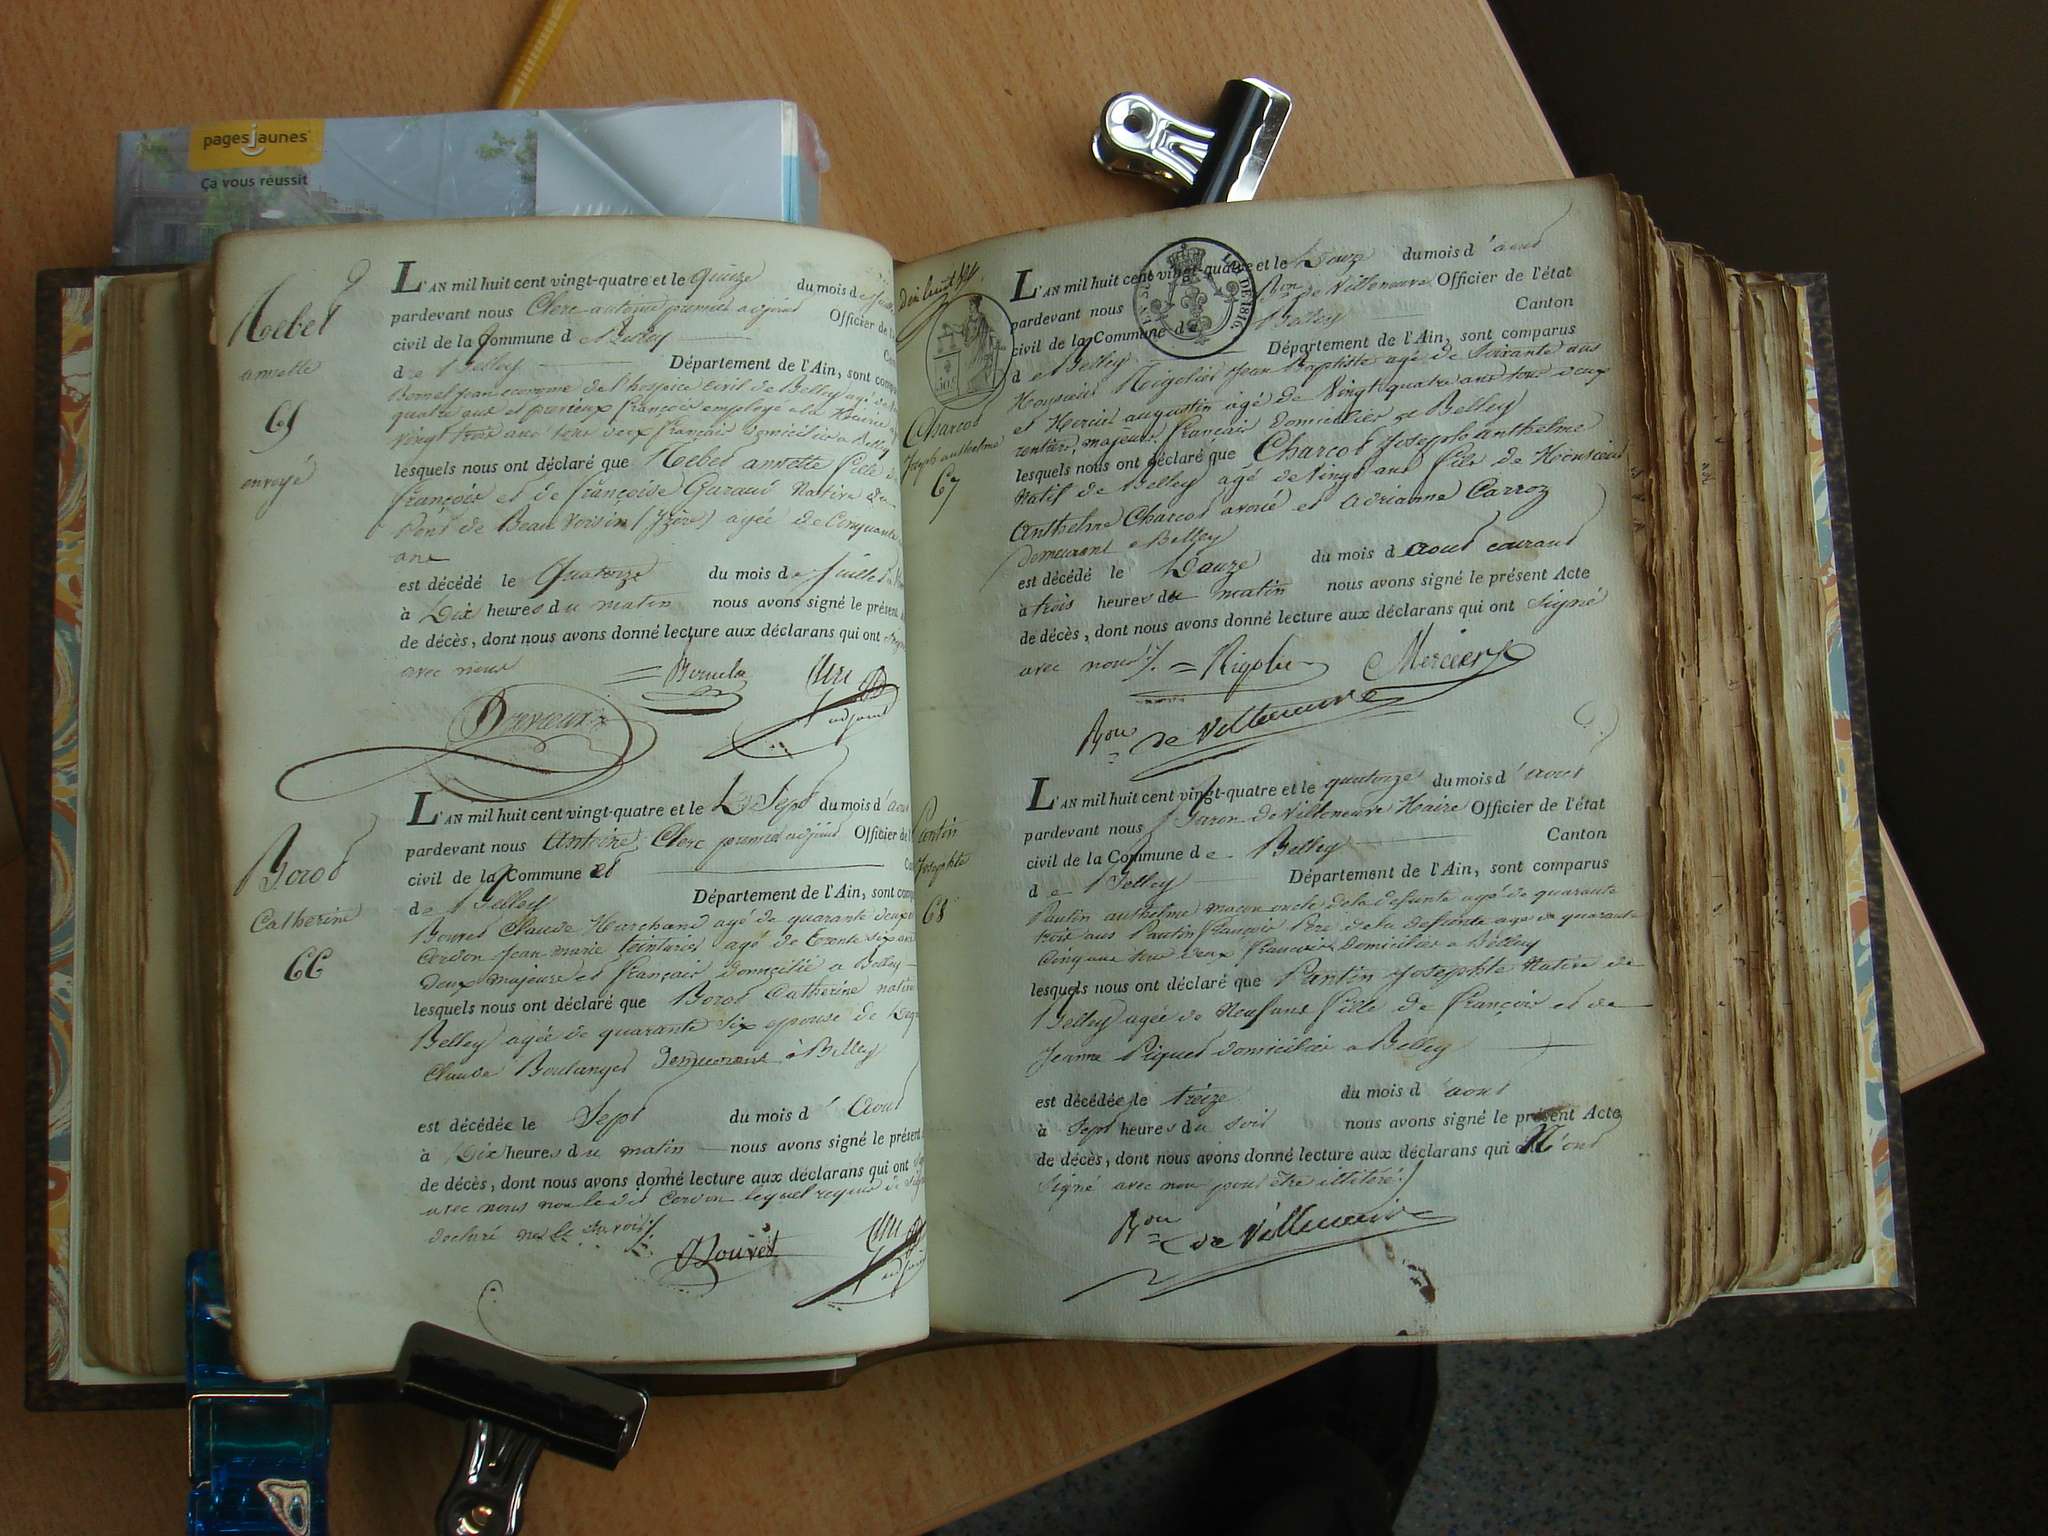 pages jaunes
Ça vous réussit
L'AN mil huit cent vingt-quatre et le quinze du mois de
pardevant nous Clerc antoine premier adjoint Officier de l'
civil de la Commune de Belley
de Belley Département de l'Ain, sont comp
annette
65
envoyé
Bornet Jean econome de l'hospice civil de Belley agé de
quatre ans et prerieux françois employé a la Mairie
vingt trois ans tous deux français domiciliés a Belley
lesquels nous ont déclaré que annette fille de
françois et de françoise Guraud Native du
Pont de Beau Voisin (Izère) agée de Cinquante
ans
est décédé le Quatorze du mois de juillet
à Dix heures du matin nous avons signé le présent
de décès, dont nous avons donné lecture aux déclarans qui ont
avec nous
adjoint
L'AN mil huit cent vingt-quatre et le Sept du mois d'aout
pardevant nous Antoine Clerc premier adjoint Officier de l'
civil de la Commune et
de Belley Département de l'Ain, sont comp
Borod
Catherine
66
Bouvet Claude Marchand agé de quarante deux
Cordon Jean marie teinturier agé de trente six ans
deux majeurs et français domicilié a Belley
lesquels nous ont déclaré que Borod Catherine native
Belley agée de quarante six epouse de
Claude Boulanger demeurant à Belley
est décédée le Sept du mois d'Aout
à Dix heures du matin nous avons signé le présent
de décès, dont nous avons donné lecture aux déclarans qui ont
avec nous non le dit Cordon lequel requis de signer
declaré ne le savoir
Bouvet
adjoint
L'AN mil huit cent vingt-quatre et le Douze du mois d'aout
pardevant nous Bon de Villeneuve Officier de l'état
civil de la Commune de Belley Canton
de Belley Département de l'Ain, sont comparus
LOI DE 1816
Charcot
Joseph anthelme
67
Monsieur Rigolier Jean Baptiste agé de Soixante ans
et Mercier augustin agé de Vingt quatre ans tous deux
rentiers, majeurs, français domiciliés a Belley
lesquels nous ont déclaré que Charcot Joseph anthelme
Natif de Belley agé de Vingt ans fils de Monsieur
Anthelme Charcot avoué et Adrianne Carroz
demeurant a Belley
est décédé le Douze du mois d'aout courant
à trois heures du matin nous avons signé le présent Acte
de décès, dont nous avons donné lecture aux déclarans qui ont signé
avec nous
Rigolier Mercier
Bon de Villeneuve
L'AN mil huit cent vingt-quatre et le quatorze du mois d'aout
pardevant nous Baron de Villeneuve Maire Officier de l'état
civil de la Commune de Belley Canton
de Belley Département de l'Ain, sont comparus
Pantin
Josephte
68
Pantin anthelme maçon oncle de la defunte agé de quarante
trois ans Pantin françois Pere de la defunte agé de quarante
cinq ans tous deux francais domiciliés a Belley
lesquels nous ont déclaré que Pantin Josephte Native de
Belley agée de Neuf ans fille de françois et de
Jeanne Piquet domiciliés a Belley
est décédée le treize du mois d'aout
à Sept heures du soir nous avons signé le présent Acte
de décès, dont nous avons donné lecture aux déclarans qui N'ont
signé avec nous pour être illitéré
Bon de Villeneuve